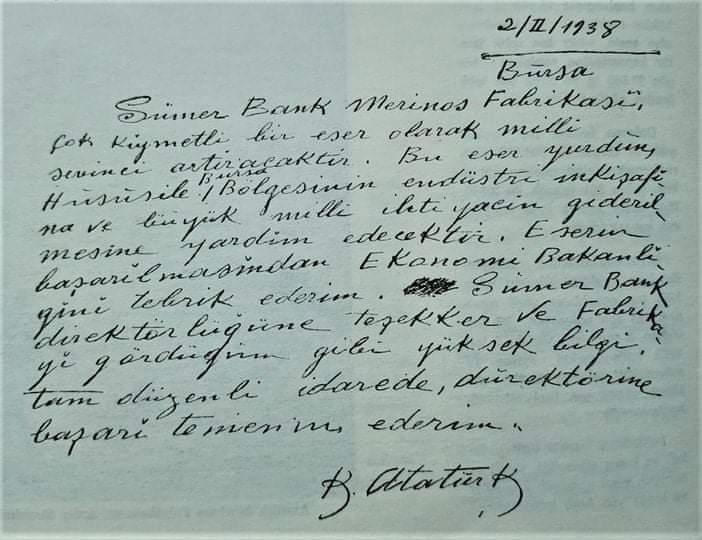 2/II/1938
Bursa
Sümer Bank Merinos Fabrikası,
çok kıymetli bir eser olarak milli
sevinci artıracaktır. Bu eser yurdun,
Bursa
Hususile / Bölgesinin endüstri inkişafı-
na ve büyük milli ihtiyacın gideril-
mesine yardım edecektir. Eserin
başarılmasından Ekonomi Bakanlı
ğını tebrik ederim. Sümer Bank
direktörlüğüne teşekker ve Fabrika-
yı gördüğüm gibi yüksek bilgi,
tam düzenli idarede, direktörine
başarı temenni ederim.
K. Atatürk